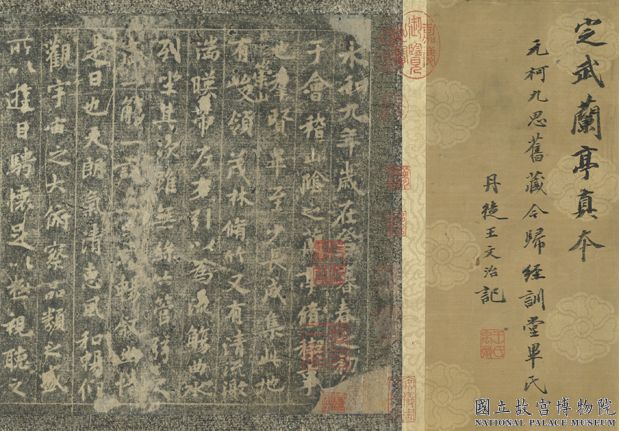 定武蘭亭真本
元柯九思舊藏今歸經訓堂畢氏
丹徒王文治記
永和九年歲在癸丑暮春之初
于會稽山陰之蘭亭脩稧事
也羣賢畢至少長咸集此地
有峻領茂林脩竹又有清流激
湍暎帶左右引以為流觴曲水
列坐其次雖無絲竹管弦之
觴一詠亦足以暢敘幽情
是日也天朗氣清惠風和暢仰
觀宇宙之大俯察品類之盛
所以遊目騁懷足以極視聽之
國立故宮博物院
NATIONAL PALACE MUSEUM